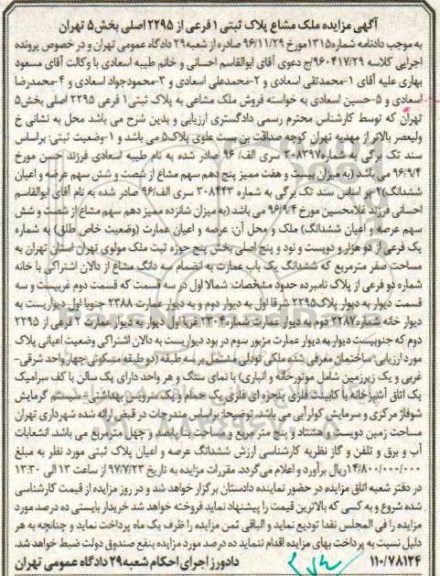 آگهی مزایده ملک مشاع پلاک ثبتی ۱ فرعی از ۲۲۹۵ اصلی بخش۵ تهران
به موجب دادنامه شماره۱۳۱۵مورخ ۹۶/۱۱/۲۹ صادره از شعبه۲۹ دادگاه عمومی تهران و در خصوص پرونده
اجرایی کلاسه ۹۶۰۴۱۷/۲۹/ج دعوی آقای ابوالقاسم احسانی و خانم طیبه اسعادی با وکالت آقای مسعود
بهاری علیه آقای ۱-محمدتقی اسعادی و ۲-محمدعلی اسعادی و ۳-محمودجواد اسعادی و ۴-محمدرضا
اسعادی و ۵-حسین اسعادی به خواسته فروش ملک مشاعی به پلاک ثبتی۱ فرعی ۲۲۹۵ اصلی بخش۵
تهران که توسط کارشناس محترم رسمی دادگستری ارزیابی و بدین شرح می باشد محل به نشانی خ
ولیعصر بالاتر از مهدیه تهران کوچه صداقت بن بست علوی پلاک۵ می باشد و ۱-وضعیت ثبتی: براساس
سند تک برگی به شماره۳۰۸۳۹۷ سری الف/ ۹۶ صادر شده به نام طیبه اسعادی فرزند حسن مورخ
۹۶/۹/۴ می باشد (به میزان بیست و هفت ممیز پنج دهم سهم مشاع از شصت و شش سهم عرصه و اعیان
ششدانگ)۲-بر اساس سند تک برگی به شماره ۳۰۸۴۴۳ سری الف/۹۶ صادر شده به نام آقای ابوالقاسم
احسانی فرزند غلامحسین مورخ ۹۶/۹/۴ می باشد (به میزان شانزده ممیز دهم سهم مشاع از شصت و شش
سهم عرصه و اعیان ششدانگ) ملک و محل آن: عرصه و اعیان عمارت (وضعیت خاص طلق) به شماره
یک فرعی از دو هزار و دویست و نود و پنج اصلی بخش پنج حوزه ثبت ملک مولوی تهران استان تهران به
مساحت صفر مترمربع که ششدانگ یک باب عمارت به انضمام سه دانگ مشاع از دالان اشتراکی با خانه
شماره دو فرعی از پلاک نامبرده حدود مشخصات: شمالا اول در سه قسمت که قسمت دوم غربیست و سه
قسمت دیوار به دیوار پلاک۲۲۹۵ شرقا اول به دیوار دوم و به دیوار عمارت ۲۳۸۸ جنوبا اول دیواریست به
دیوار خانه شماره۲۲۸۷ دوم به دیوار عمارت شماره۲۳۰۴ غربا اول دیوار به دیوار عمارت ۲ فرعی از ۲۲۹۵
دوم که جنوبیست دیوار به دیوار عمارت مزبور سوم در بود دیواریست به دالان اشتراکی وضعیت اعیانی پلاک
مورد ارزیابی: ساختمان معرفی شده ملکی دونبش مشتمل بر سه طبقه (دو طبقه مسکونی چهار واحد شرقی-
غربی و یک زیرزمین شامل موتورخانه و انباری) با نمای سنگ و هر واحد دارای یک سالن با کف سرامیک
یک اتاق آشپزخانه با کابینت فلزی پنجره ای فلزی یک حمام و یک سرویس بهداشتی سیستم گرمایش
شوفاژ مرکزی و سرمایش کولرآبی می باشد. توضیحا: براساس مندرجات در قبض ارائه شده شهرداری تهران
مساحت زمین دویست و هشتاد و پنج متر مربع و مساحت با پانصد و چهل مترمربع می باشد. انشعابات
آب و برق و تلفن و گاز نظریه کارشناسی ارزش ششدانگ عرصه و اعیان پلاک ثبتی مورد نظر به مبلغ
۱۴/۸۰۰/۰۰۰/۰۰۰ریال برآورد و اعلام می گردد. مقررات مزایده به تاریخ ۹۷/۷/۲۳ از ساعت ۱۳ الی ۱۳:۳۰
در دفتر شعبه اتاق مزایده در حضور نماینده دادستان برگزار خواهد شد و در روز مزایده از قیمت کارشناسی
شده شروع و به کسی که بالاترین قیمت را پیشنهاد نماید فروخته خواهد شد خریدار بایستی ده درصد مورد
مزایده را فی المجلس نقدا تودیع نماید و الباقی ثمن مزایده را ظرف یک ماه پرداخت نماید و چنانچه به هر
دلیل نسبت به پرداخت بهای مزایده اقدام ننماید ده درصد مورد مزایده بنفع صندوق دولت ضبط خواهد شد.
۱۱۰/۷۸۱۲۴ دادورز اجرای احکام شعبه۲۹ دادگاه عمومی تهران